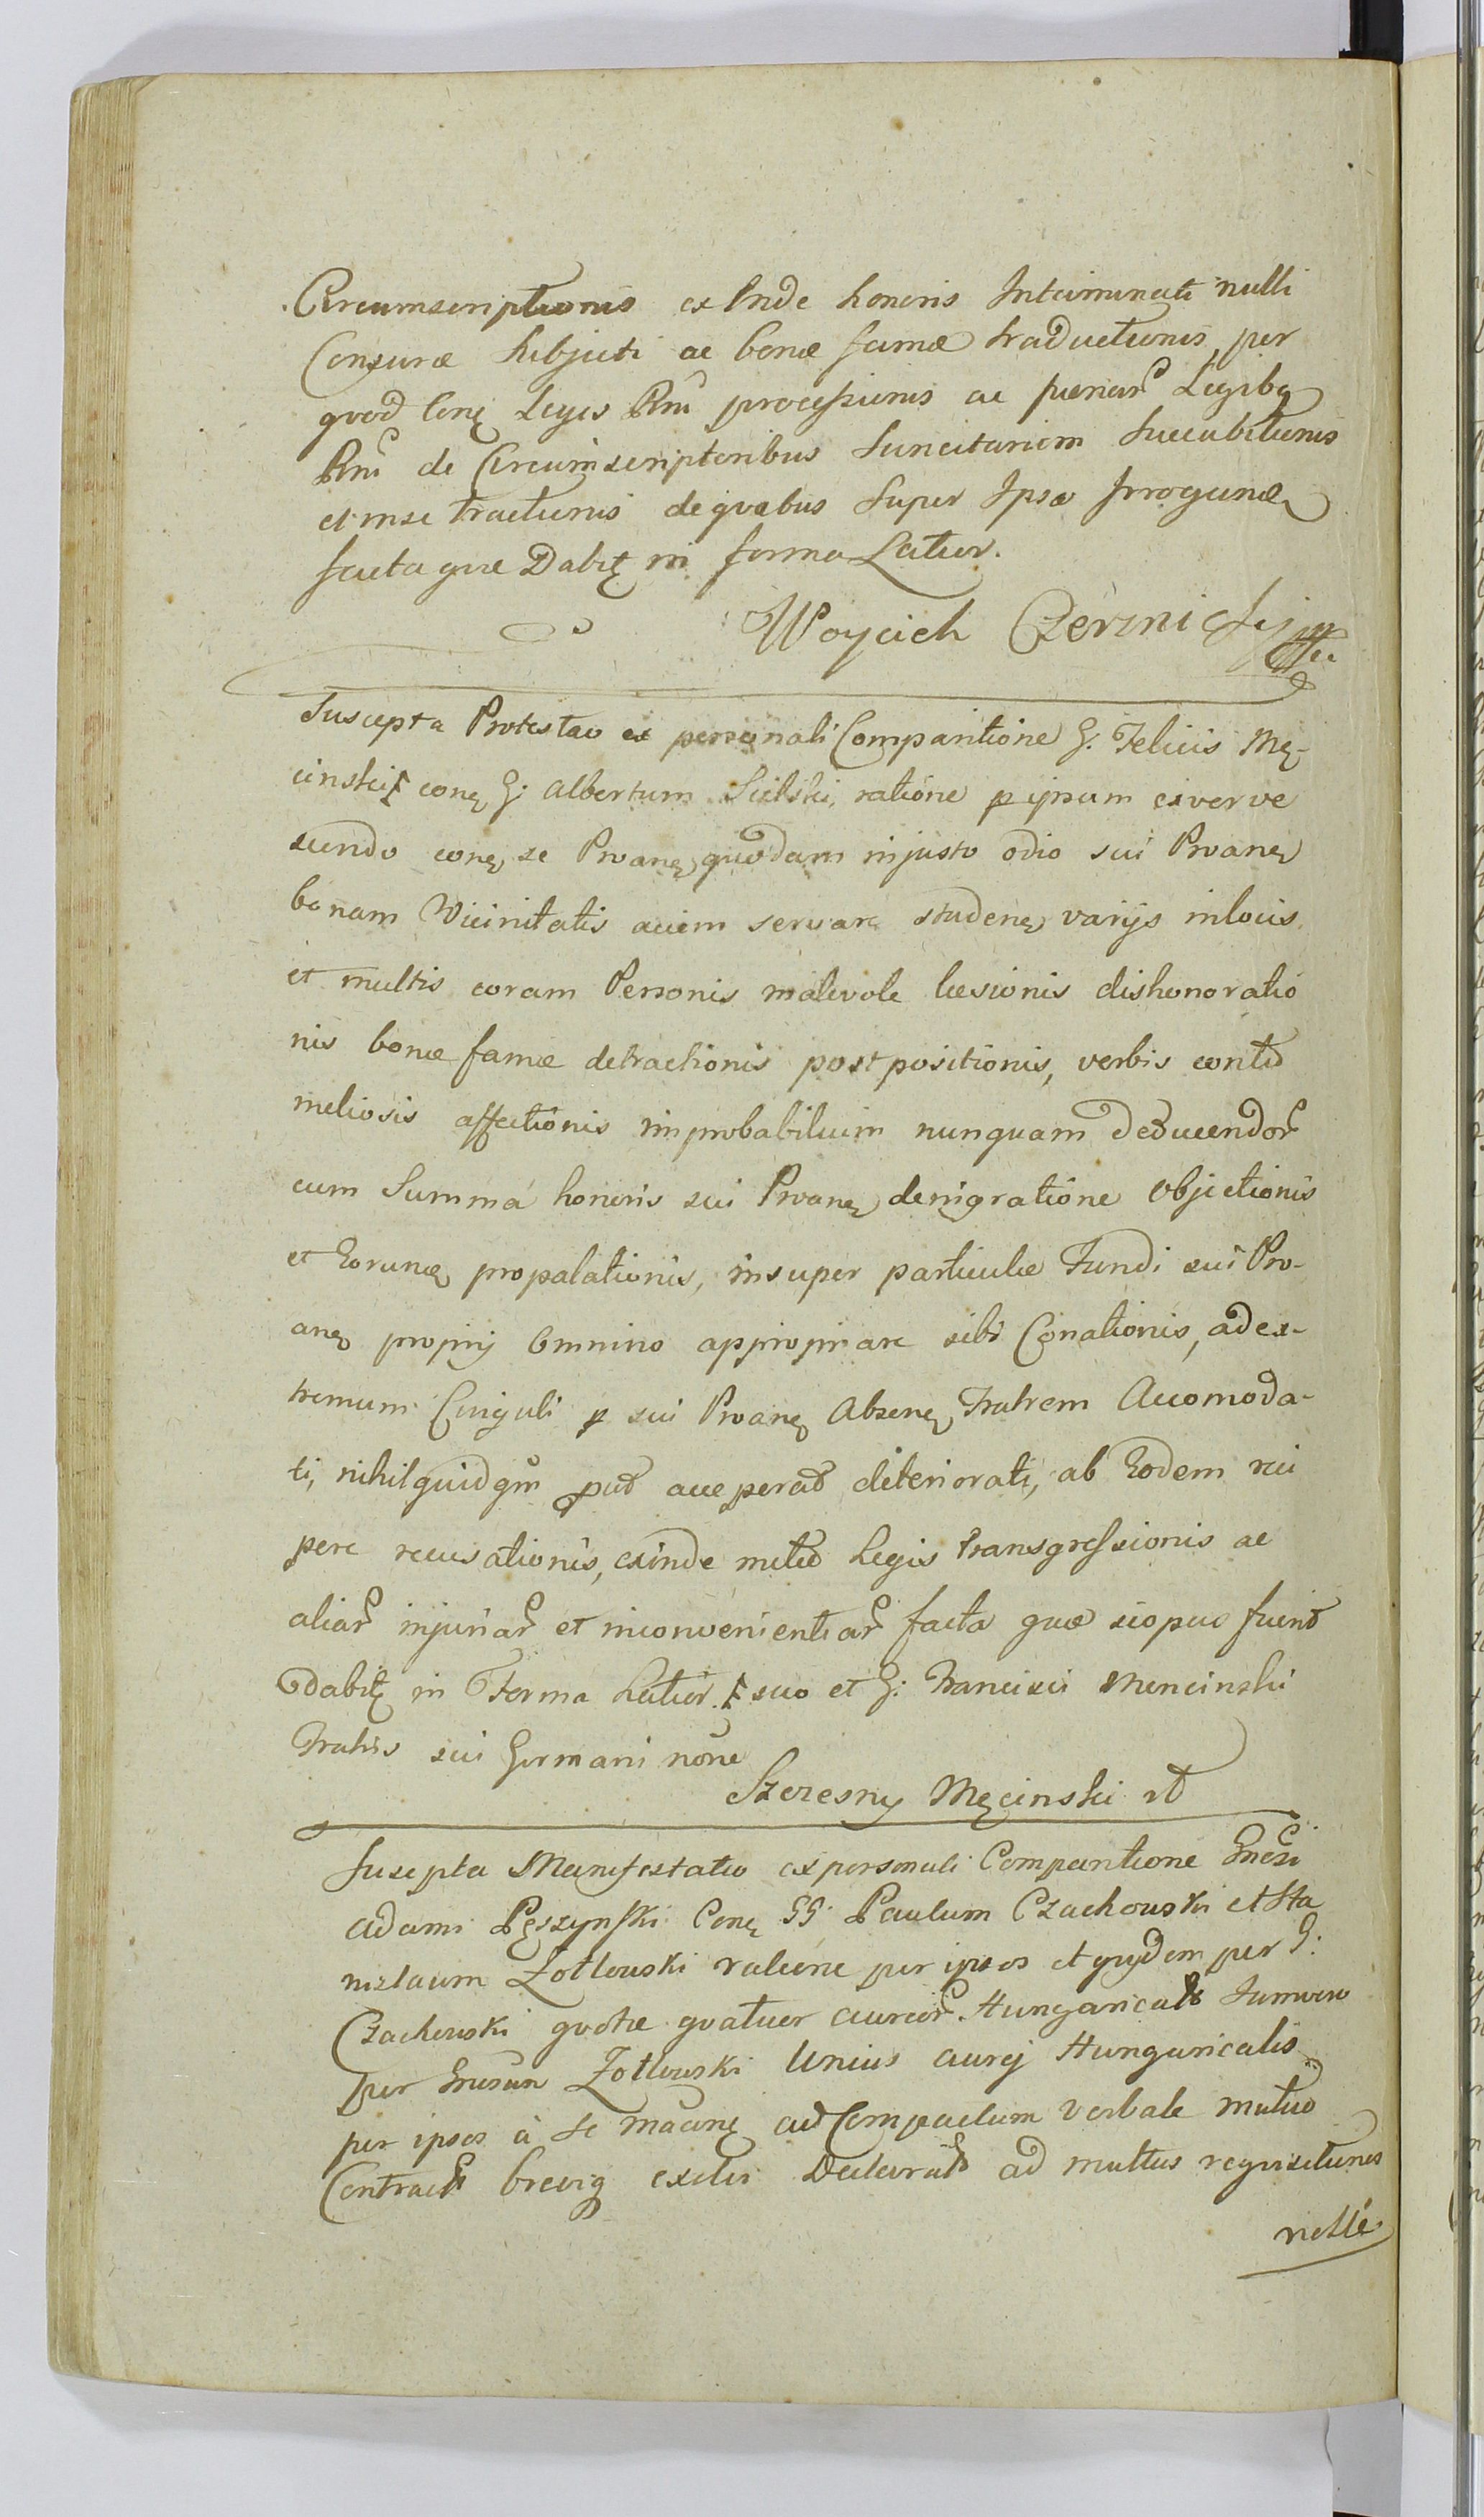 Circumscriptionis ex Inde honoris Interminati nulli
Censuræ subjecti ac bonæ famæ traductionis, per
qvod Conę Leges Rni processionis ac penarͬ Legibꝫ
Rni de Circumscriptoribus Sancitarum Succubitionis
et in se tractionis de qvibus Super Ipso
facta qvæ Dabitͬ in forma Latior.
Woyciech
Suscepta Protestao ex personali Comparitione G. Felicis Mę-
cinski conę G: Albertum Sielski, ratione p ipsum
scendo conę se Proanę, quodam injusto odio sui Proanę
bonam Vicinitatis aciem servare studenę, varijs in locis
et multis coram Personis malevole læsionis dishonoratio
nis bonæ famæ detractionis postpositionis, verbis contu
meliosis affectionis improbabilium nunquam deducendorͬ
cum Summá honoris sui Proanę denigratione objectionis
et Eorumę propalationis, insuper particulæ Fundi sui Pro-
anę proprij omnino appropriare sibi Conationis, ad ex-
tremum Cinguli p sui Proanę Absenę Fratrem Accomoda-
ti, nihil quidqm deteriorati, ab Eodem reci
pere recusationis, exinde Legis transgressionis ac
aliarͬ injuriarͬ et inconvenientiarͬ facta quæ
dabitͬ in Forma Latior. suo et G: Francisci Mencinski
Fratris sui Germani noīe
Szczesny Męcinski
Suscepta Manifestatio ex personali Comparitione Gnesi
Adami Pęszynski Conę GG. Paulum Czachowski et Sta
nislaum Zołtowski ratione per ipsos et qvidem per G:
Czachowski qvotæ qvatuor aureorͬ Hungaricalis
per Gnesum Zołtowski Unius aurej Hungaricalis
per ipsos à se ad Compactum verbale mutuo
Contracti brevię exilis ad multas reqvisitiones
nolle